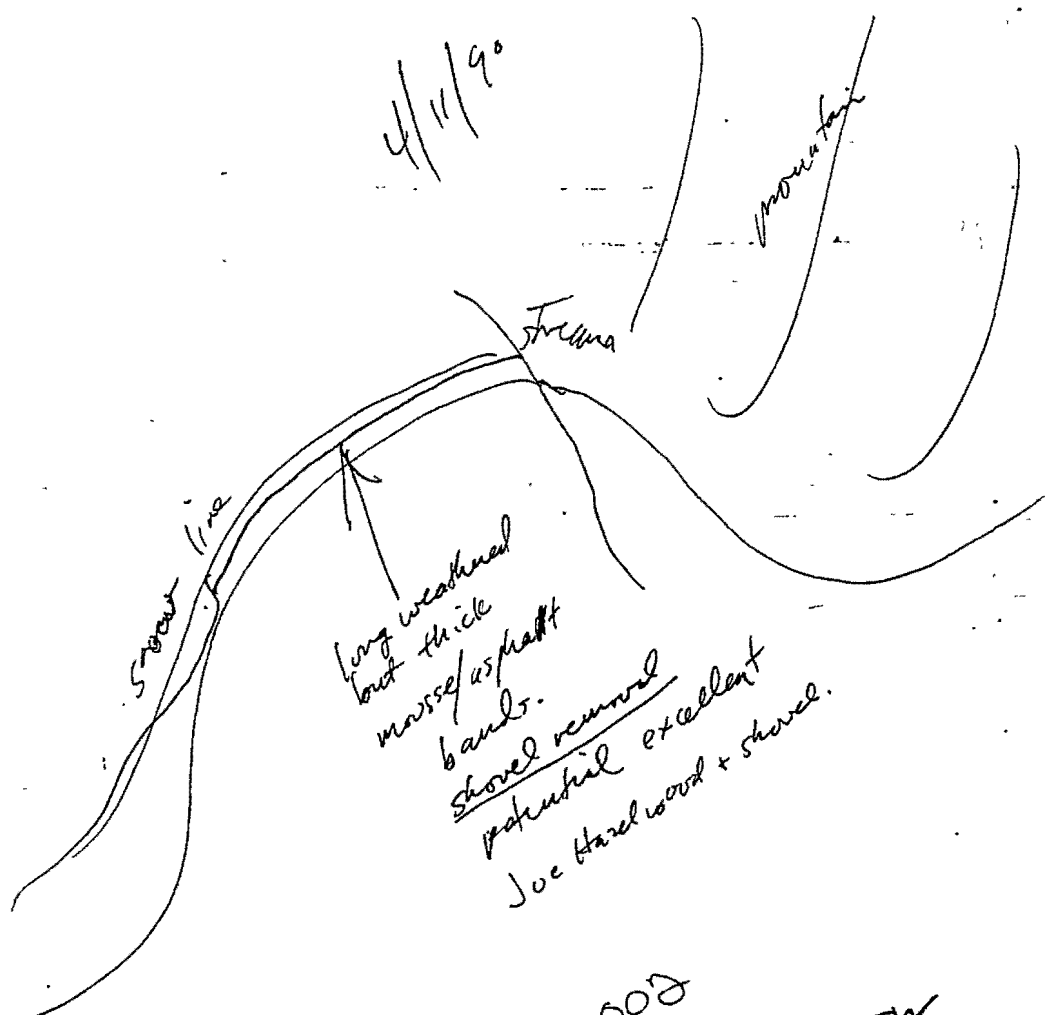 4/11/90
mountain
stream
snow line
long weathered
but thick
mousse/asphalt
bands.
shovel removal
potential excellent
Joe Hazelwood + shovel.
002